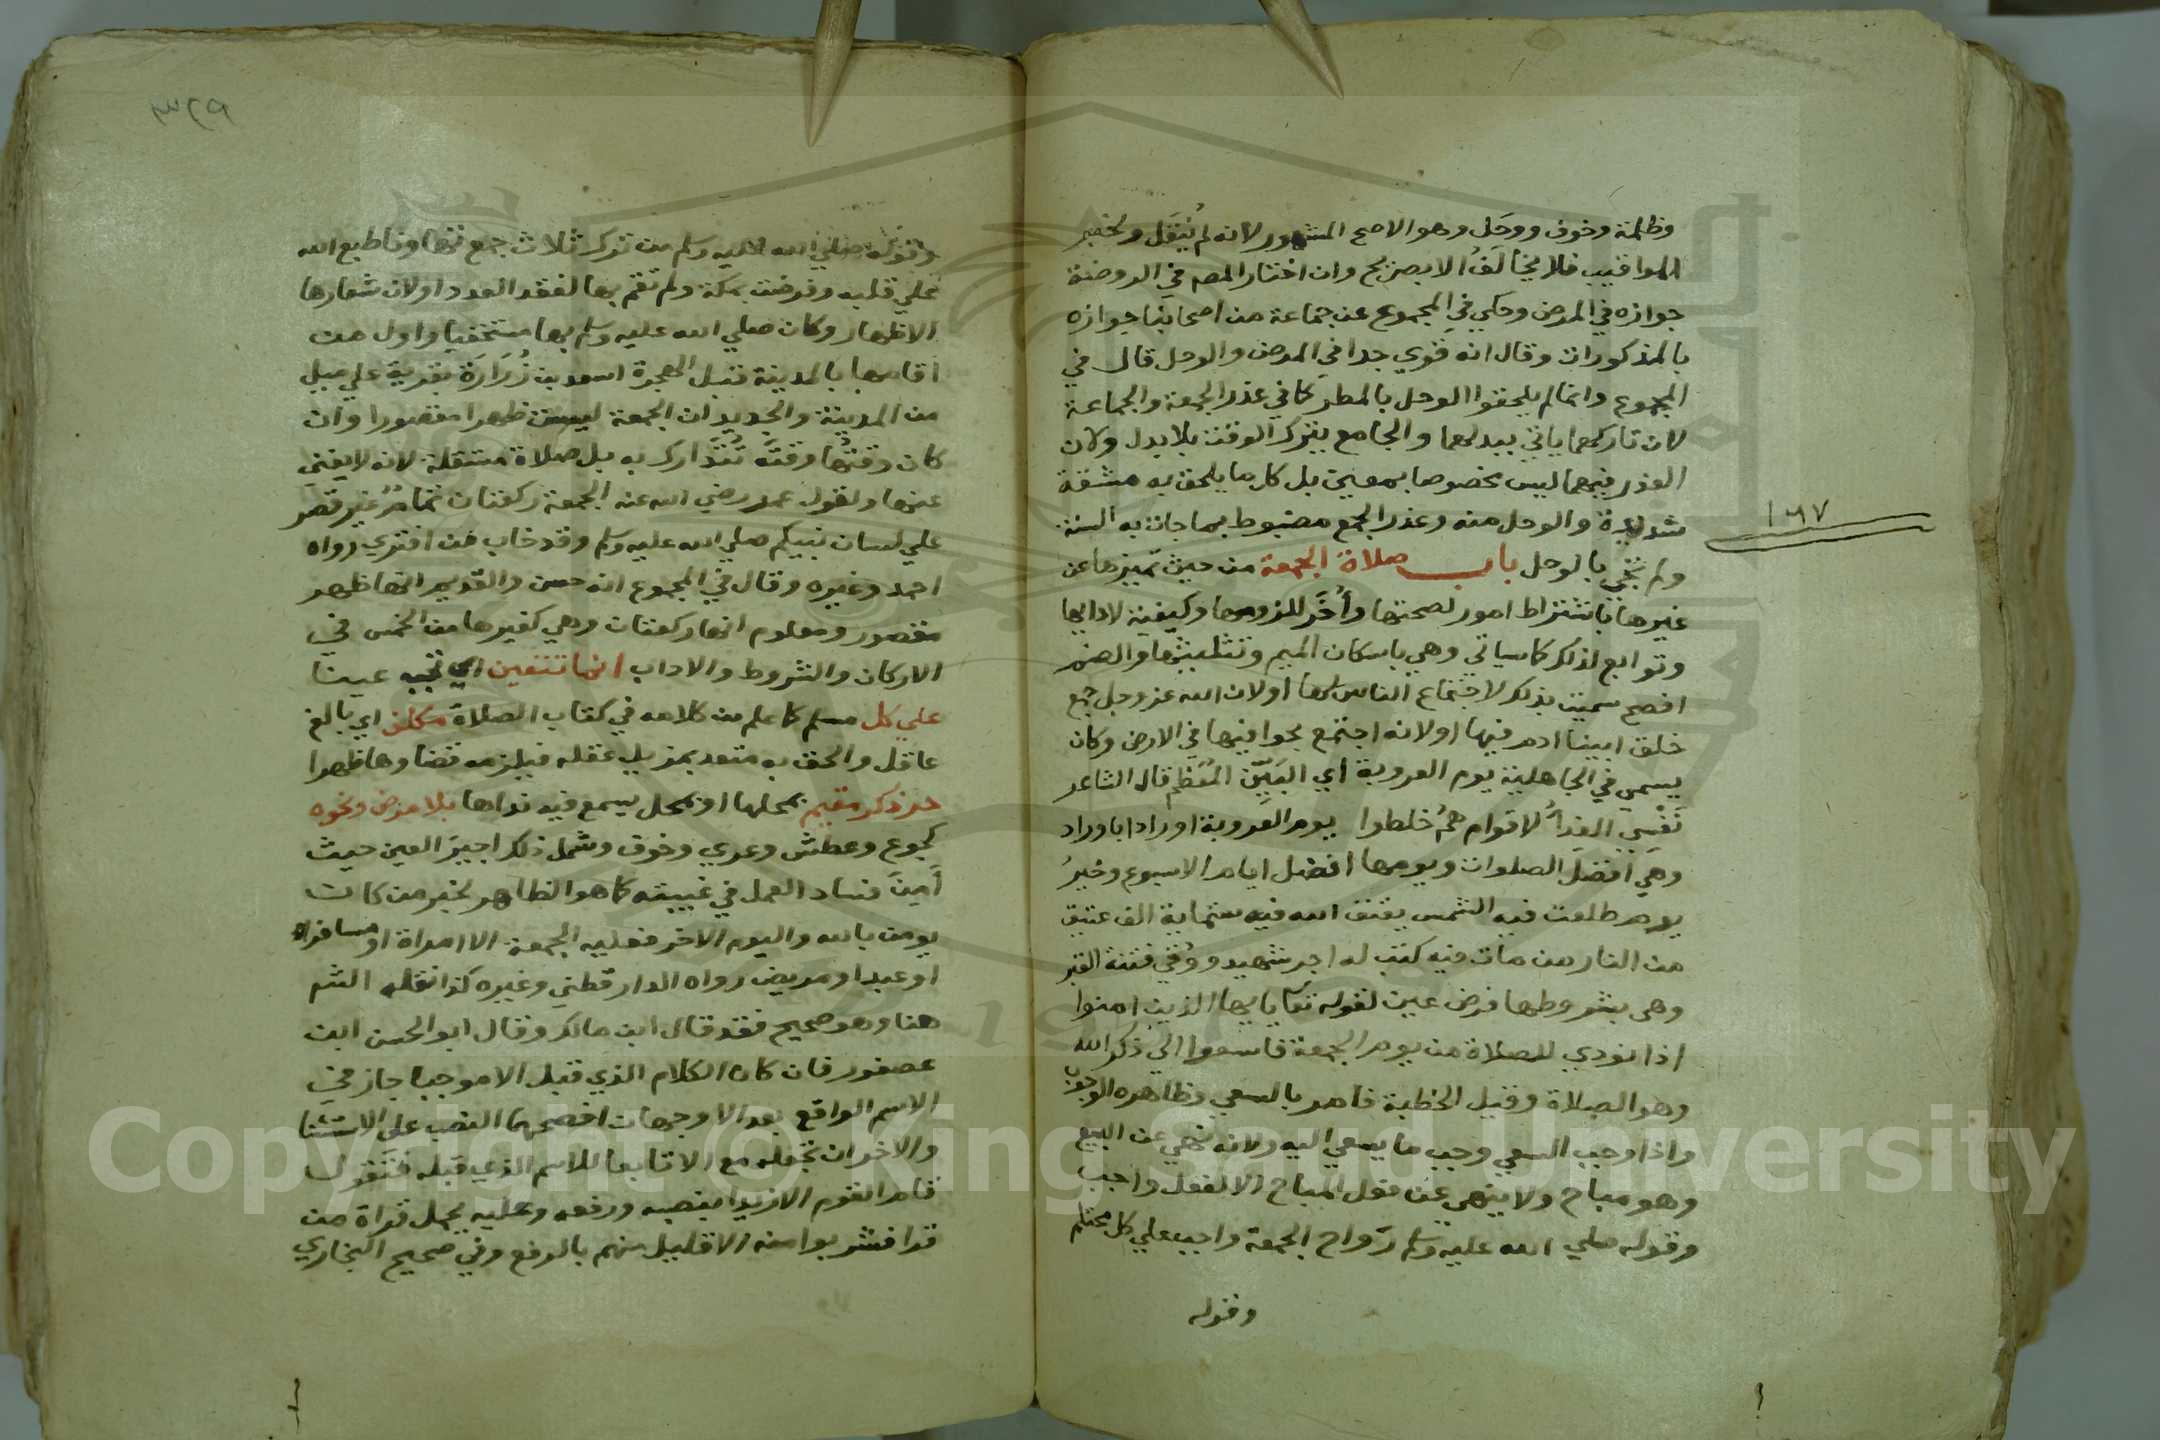 وظلمة وخوف ووحل وهو الاصح المشهور لانه لم ينقل ولخبر
المواقيت فلا يخالف الا بصريح وان اختار المص في الروضة
جوازه في المرض وحكي في المجموع عن جماعة من اصحابنا جوازه
بالمذكورات وقال انه قوي جدا في المرض والوحل قال في
المجموع وانما لم يلحقوا الوحل بالمطر كما في عذر الجمعة والجماعة
لان تاركهما ياتي ببدلهما والجامع يترك الوقت بلا بدل ولان
العذر فيهما ليس مخصوصا بمعين بل كل ما يلحق به مشقة
شديدة والوحل منه وعذر الجمع مضبوط بما جات به السنة
١٦٧
ولم تجي بالوحل باب صلاة الجمعة من حيث تميزها عن
غيرها باشتراط امور لصحتها وأخر للزومها وكيفية لادايها
وتوابع لذلك كما سياتي وهي باسكان الميم وتثليثها والضم
افصح سميت بذلك لاجتماع الناس لها اولان الله عز وجل جمع
خلق ابينا ادم فيها اولانه اجتمع بحوا فيها في الارض وكان
يسمى في الجاهلية يوم العروبة أي البين المعظم قال الشاعر
نفسي الفداُ لاقوام همُ خلطوا يوم العروبة اورادا باوراد
وهي افضل الصلوات ويومها افضل ايام الاسبوع وخيرُ
يوم طلعت فيه الشمس يعتق الله فيه ستماية الف عتيق
من النار من مات فيه كتب له اجر شهيد ووُقي فتنة القبر
وهى بشروطها فرض عين لقوله تعا يا يها الذين امنوا
اذا نودي للصلاة من يوم الجمعة فاسعوا الى ذكر الله
وهو الصلاة وقيل الخطبة فامر بالسعي وظاهره الوجوب
واذا وجب السعي وجب ما يسعي اليه ولانه نهي عن البيع
وهو مباح ولا ينهى عن فعل المباح الا لفعل واجب
وقوله صلي الله عليه وسلم رواح الجمعة واجب علي كل محتلم
وقوله
٣٢٩
وقوله صلي الله عليه وسلم من ترك ثلاث جمع تهاونا طبع الله
علي قلبه وفرضت بمكة ولم تقم بها لفقد العدد اولان شعارها
الاظهار وكان صلي الله عليه وسلم بها مستخفيا واول من
اقامها بالمدينة قبل الهجرة اسعد بن زُرَارَة بقرية علي ميل
من المدينة والجديد ان الجمعة ليست ظهرا مقصورا وان
كان وقتُها وقتَه تُتَدَارك به بل صلاة مستقلة لانه لا يغني
عنها ولقول عمر رضي الله عنه الجمعة ركعتان تمامٌ غير قصر
علي لسان نبيكم صلي الله عليه وسلم وقد خاب من افترى رواه
احمد وغيره وقال في المجموع انه حسن والقديم انها ظهر
مقصور ومعلوم انها ركعتان وهي كغيرها من الخمس في
الاركان والشروط والاداب انما تتعين اي تجب عينا
علي كل مسلم كما علم من كلامه في كتاب الصلاة مكلف اي بالغ
عاقل والحق به متعد بمزيل عقله فيلزمه قضاوها ظهرا
حر ذكر مقيم بمحلها او بمحل يسمع فيه نداها بلا مرض ونحوه
كجوع وعطش وعري وخوف وشمل ذلك اجير العين حيث
أمِنَ فساد العمل في غيبته كما هو الظاهر لخبر من كان
يومن بالله واليوم الاخر فعليه الجمعة الا امراة او مسافرا
او عبدا او مريض رواه الدار قطني وغيره كذا نقله الشم
هنا وهو صحيح فقد قال ابن مالك وقال ابو الحسن ابن
عصفور فان كان الكلام الذي قبل الا موجبا جاز في
الاسم الواقع بعد الا وجهان افصحهما النصب على الاستثنا
والاخر ان تجعله مع الا تابعا للاسم الذي قبله فتقول
قام القوم الا زيدا بنصبه ورفعه وعليه يحمل قراة من
قرا فشربوا منه الا قليل منهم بالرفع وفي صحيح البخاري
Copyright © King Saud University